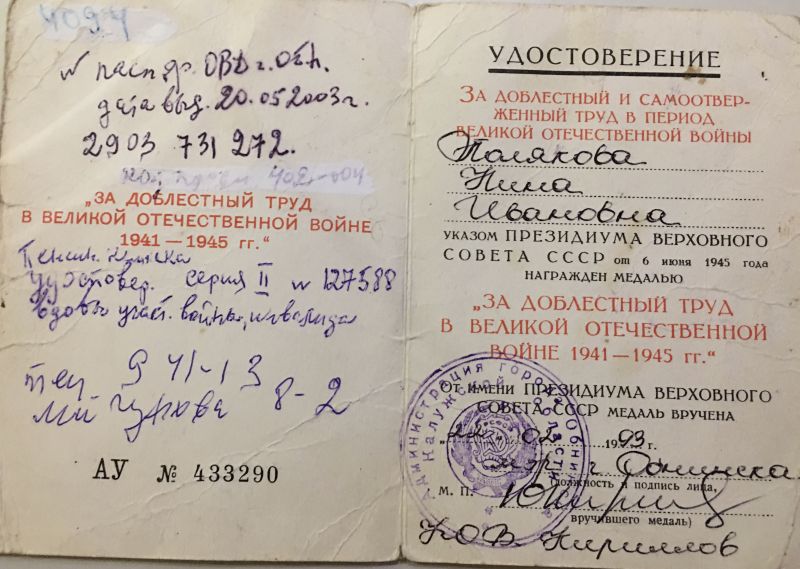 4094
№ паспор. ОВД г. Обн.
дата выд. 20.05.2003г.
2903 731 272.
402-004
„ЗА ДОБЛЕСТНЫЙ ТРУД
В ВЕЛИКОЙ ОТЕЧЕСТВЕННОЙ ВОЙНЕ
1941—1945 гг.“
удостовер. серия II № 127588
вдовы участ. войны, инвалида
тел. 9 41-13
8-2
АУ № 433290
УДОСТОВЕРЕНИЕ
ЗА ДОБЛЕСТНЫЙ И САМООТВЕР-
ЖЕННЫЙ ТРУД В ПЕРИОД
ВЕЛИКОЙ ОТЕЧЕСТВЕННОЙ ВОЙНЫ
Полякова
Нина
Ивановна
УКАЗОМ ПРЕЗИДИУМА ВЕРХОВНОГО
СОВЕТА СССР от 6 июня 1945 года
НАГРАЖДЕН МЕДАЛЬЮ
„ЗА ДОБЛЕСТНЫЙ ТРУД
В ВЕЛИКОЙ ОТЕЧЕСТВЕННОЙ
ВОЙНЕ 1941—1945 гг.“
ОТ ИМЕНИ ПРЕЗИДИУМА ВЕРХОВНОГО
СОВЕТА СССР МЕДАЛЬ ВРУЧЕНА
„22“ 02 1993 г.
Администрация города Обнинска
Калужской области
мэр г. Обнинска
М. П. (должность и подпись лица,
вручившего медаль)
Ю.В. Кириллов